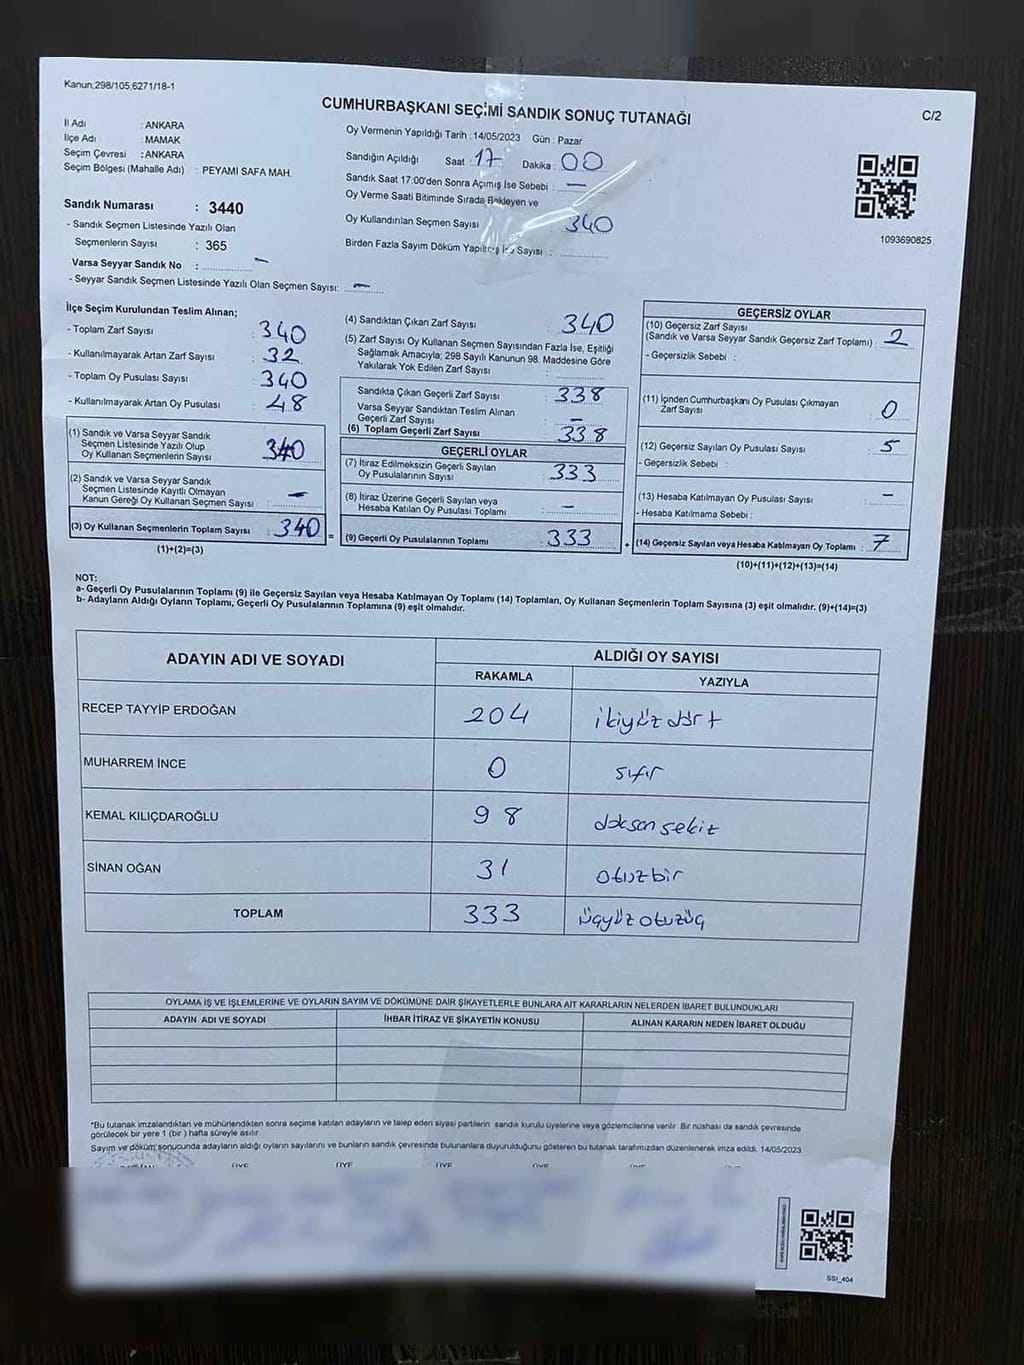 Kanun:298/105,6271/18-1
CUMHURBAŞKANI SEÇİMİ SANDIK SONUÇ TUTANAĞI
C/2
İl Adı : ANKARA
İlçe Adı : MAMAK
Seçim Çevresi : ANKARA
Seçim Bölgesi (Mahalle Adı) : PEYAMİ SAFA MAH.
Sandık Numarası : 3440
- Sandık Seçmen Listesinde Yazılı Olan
Seçmenlerin Sayısı : 365
Varsa Seyyar Sandık No : -
- Seyyar Sandık Seçmen Listesinde Yazılı Olan Seçmen Sayısı: -
Oy Vermenin Yapıldığı Tarih : 14/05/2023 Gün : Pazar
Sandığın Açıldığı Saat : 17 Dakika : 00
Sandık Saat 17:00'den Sonra Açımış İse Sebebi : -
Oy Verme Saati Bitiminde Sırada Bekleyen ve
Oy Kullandırılan Seçmen Sayısı : 340
Birden Fazla Sayım Döküm Yapılmış İse Sayısı :
1093690825
İlçe Seçim Kurulundan Teslim Alınan;
- Toplam Zarf Sayısı : 340
- Kullanılmayarak Artan Zarf Sayısı : 32
- Toplam Oy Pusulası Sayısı : 340
- Kullanılmayarak Artan Oy Pusulası : 48
(1) Sandık ve Varsa Seyyar Sandık
Seçmen Listesinde Yazılı Olup
Oy Kullanan Seçmenlerin Sayısı : 340
(2) Sandık ve Varsa Seyyar Sandık
Seçmen Listesinde Kayıtlı Olmayan
Kanun Gereği Oy Kullanan Seçmen Sayısı : -
(3) Oy Kullanan Seçmenlerin Toplam Sayısı : 340
(1)+(2)=(3)
=
(4) Sandıktan Çıkan Zarf Sayısı : 340
(5) Zarf Sayısı Oy Kullanan Seçmen Sayısından Fazla İse, Eşitliği
Sağlamak Amacıyla; 298 Sayılı Kanunun 98. Maddesine Göre
Yakılarak Yok Edilen Zarf Sayısı :
Sandıkta Çıkan Geçerli Zarf Sayısı : 338
Varsa Seyyar Sandıktan Teslim Alınan
Geçerli Zarf Sayısı : -
(6) Toplam Geçerli Zarf Sayısı : 338
GEÇERLİ OYLAR
(7) İtiraz Edilmeksizin Geçerli Sayılan
Oy Pusulalarının Sayısı : 333
(8) İtiraz Üzerine Geçerli Sayılan veya
Hesaba Katılan Oy Pusulası Toplamı : -
(9) Geçerli Oy Pusulalarının Toplamı : 333
+
GEÇERSİZ OYLAR
(10) Geçersiz Zarf Sayısı
(Sandık ve Varsa Seyyar Sandık Geçersiz Zarf Toplamı) : 2
- Geçersizlik Sebebi :
(11) İçinden Cumhurbaşkanı Oy Pusulası Çıkmayan
Zarf Sayısı : 0
(12) Geçersiz Sayılan Oy Pusulası Sayısı : 5
- Geçersizlik Sebebi :
(13) Hesaba Katılmayan Oy Pusulası Sayısı : -
- Hesaba Katılmama Sebebi :
(14) Geçersiz Sayılan veya Hesaba Katılmayan Oy Toplamı : 7
(10)+(11)+(12)+(13)=(14)
NOT:
a- Geçerli Oy Pusulalarının Toplamı (9) ile Geçersiz Sayılan veya Hesaba Katılmayan Oy Toplamı (14) Toplamları, Oy Kullanan Seçmenlerin Toplam Sayısına (3) eşit olmalıdır. (9)+(14)=(3)
b- Adayların Aldığı Oyların Toplamı, Geçerli Oy Pusulalarının Toplamına (9) eşit olmalıdır.
ADAYIN ADI VE SOYADI
ALDIĞI OY SAYISI
RAKAMLA YAZIYLA
RECEP TAYYİP ERDOĞAN 204 ikiyüz dört
MUHARREM İNCE 0 sıfır
KEMAL KILIÇDAROĞLU 98 doksan sekiz
SİNAN OĞAN 31 otuzbir
TOPLAM 333 üçyüz otuzüç
OYLAMA İŞ VE İŞLEMLERİNE VE OYLARIN SAYIM VE DÖKÜMÜNE DAİR ŞİKAYETLERLE BUNLARA AİT KARARLARIN NELERDEN İBARET BULUNDUKLARI
ADAYIN ADI VE SOYADI İHBAR İTİRAZ VE ŞİKAYETİN KONUSU ALINAN KARARIN NEDEN İBARET OLDUĞU
*Bu tutanak imzalandıktan ve mühürlendikten sonra seçime katılan adayların ve talep eden siyasi partilerin sandık kurulu üyelerine veya gözlemcilerine verilir. Bir nüshası da sandık çevresinde
görülecek bir yere 1 (bir) hafta süreyle asılır.
Sayım ve döküm sonucunda adayların aldığı oyların sayılarını ve bunların sandık çevresinde bulunanlara duyurulduğunu gösteren bu tutanak tarafımızdan düzenlenerek imza edildi. 14/05/2023
ÜYE ÜYE ÜYE ÜYE ÜYE ÜYE
SSI_404